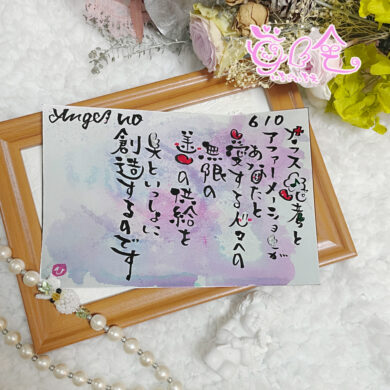 Angel NO
610
プラス思考と
アファーメーションが
あなたと
愛する人々への
無限の
善の供給を
といっしょに
創造するのです